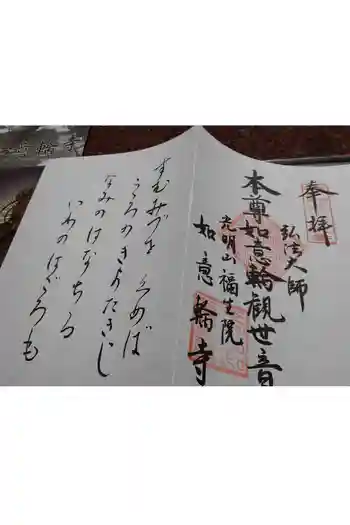 奉拝
弘法大師
本尊如意輪観世音
光明山福生院
如意輪寺
すむみづを くめば
こころのきよたきに
なみのはなちる
いわのはごろも